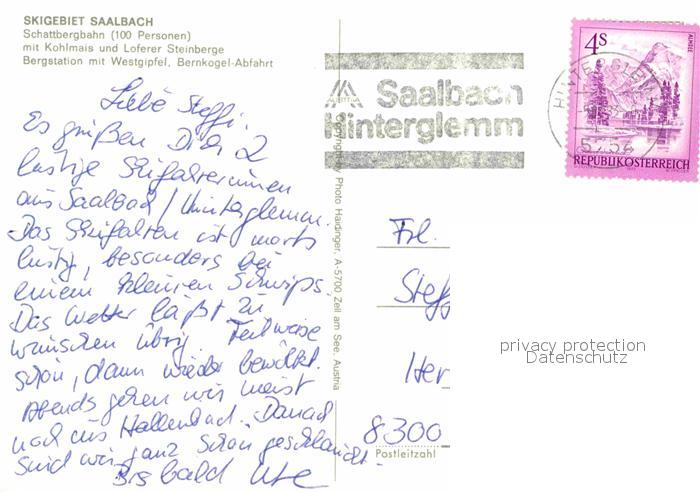 SKIGEBIET SAALBACH
Schattbergbahn (100 Personen)
mit Kohlmais und Loferer Steinberge
Bergstation mit Westgipfel, Bernkogel-Abfahrt
Liebe Steffi.
Es grüßen Dich 2
lustige Skifahrerinnen
aus Saalbach/Hinterglemm.
Das Skifahren ist mords
lustig, besonders bei
einem kleinen Schwips.
Das Wetter läßt zu
wünschen übrig. Teilweise
schön, dann wieder bewölkt.
Abends gehen wir meist
noch ins Hallenbad. Danach
sind wir ganz schön geschlaucht.
Bis bald Ute
Copyright by Photo Haidinger, A-5700 Zell am See, Austria
Saalbach
Hinterglemm
4S
ALMSEE
REPUBLIK ÖSTERREICH
HINTERGLEMM
5754
Frl.
Steff
Her
8300
Postleitzahl
privacy protection
Datenschutz